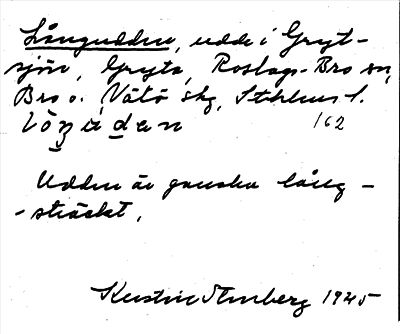 Långudden, udde i Gryt-
sjön, Gryta, Roslags-Bro sn,
Bro o. Vätö skg, Sthlms l.
lȯŋu̇dɛn 162
Udden är ganska lång-
-sträckt.
Kerstin Stenberg 1945